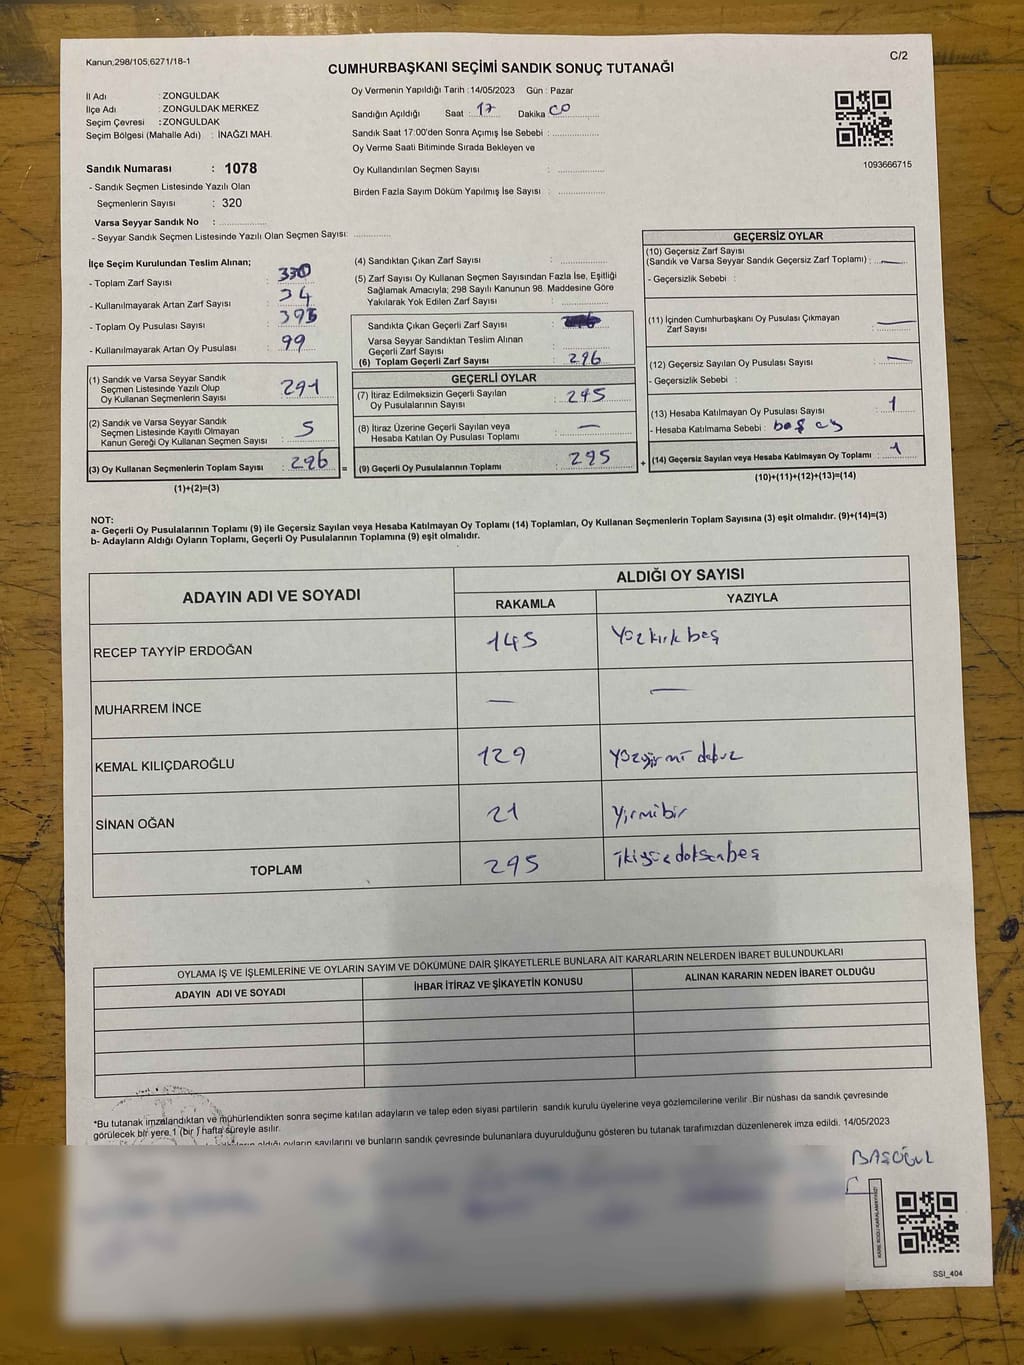 Kanun;298/105;6271/18-1
C/2
CUMHURBAŞKANI SEÇİMİ SANDIK SONUÇ TUTANAĞI
İl Adı : ZONGULDAK
İlçe Adı : ZONGULDAK MERKEZ
Seçim Çevresi : ZONGULDAK
Seçim Bölgesi (Mahalle Adı) : İNAĞZI MAH.
Oy Vermenin Yapıldığı Tarih :14/05/2023 Gün : Pazar
Sandığın Açıldığı Saat : 17 Dakika
Sandık Saat 17:00'den Sonra Açımış İse Sebebi :
Oy Verme Saati Bitiminde Sırada Bekleyen ve
Oy Kullandırılan Seçmen Sayısı :
Birden Fazla Sayım Döküm Yapılmış İse Sayısı :
1093666715
Sandık Numarası : 1078
- Sandık Seçmen Listesinde Yazılı Olan
Seçmenlerin Sayısı : 320
Varsa Seyyar Sandık No :
- Seyyar Sandık Seçmen Listesinde Yazılı Olan Seçmen Sayısı:
İlçe Seçim Kurulundan Teslim Alınan;
- Toplam Zarf Sayısı : 330
- Kullanılmayarak Artan Zarf Sayısı : 34
- Toplam Oy Pusulası Sayısı :
- Kullanılmayarak Artan Oy Pusulası : 99
(1) Sandık ve Varsa Seyyar Sandık
Seçmen Listesinde Yazılı Olup
Oy Kullanan Seçmenlerin Sayısı : 291
(2) Sandık ve Varsa Seyyar Sandık
Seçmen Listesinde Kayıtlı Olmayan
Kanun Gereği Oy Kullanan Seçmen Sayısı : 5
(3) Oy Kullanan Seçmenlerin Toplam Sayısı : 296
(1)+(2)=(3)
(4) Sandıktan Çıkan Zarf Sayısı :
(5) Zarf Sayısı Oy Kullanan Seçmen Sayısından Fazla İse, Eşitliği
Sağlamak Amacıyla; 298 Sayılı Kanunun 98. Maddesine Göre
Yakılarak Yok Edilen Zarf Sayısı :
Sandıkta Çıkan Geçerli Zarf Sayısı :
Varsa Seyyar Sandıktan Teslim Alınan
Geçerli Zarf Sayısı :
(6) Toplam Geçerli Zarf Sayısı : 296
GEÇERLİ OYLAR
(7) İtiraz Edilmeksizin Geçerli Sayılan
Oy Pusulalarının Sayısı : 295
(8) İtiraz Üzerine Geçerli Sayılan veya
Hesaba Katılan Oy Pusulası Toplamı : —
= (9) Geçerli Oy Pusulalarının Toplamı : 295
GEÇERSİZ OYLAR
(10) Geçersiz Zarf Sayısı
(Sandık ve Varsa Seyyar Sandık Geçersiz Zarf Toplamı) : —
- Geçersizlik Sebebi :
(11) İçinden Cumhurbaşkanı Oy Pusulası Çıkmayan
Zarf Sayısı : —
(12) Geçersiz Sayılan Oy Pusulası Sayısı : —
- Geçersizlik Sebebi :
(13) Hesaba Katılmayan Oy Pusulası Sayısı : 1
- Hesaba Katılmama Sebebi : boş oy
+ (14) Geçersiz Sayılan veya Hesaba Katılmayan Oy Toplamı : 1
(10)+(11)+(12)+(13)=(14)
NOT:
a- Geçerli Oy Pusulalarının Toplamı (9) ile Geçersiz Sayılan veya Hesaba Katılmayan Oy Toplamı (14) Toplamları, Oy Kullanan Seçmenlerin Toplam Sayısına (3) eşit olmalıdır. (9)+(14)=(3)
b- Adayların Aldığı Oyların Toplamı, Geçerli Oy Pusulalarının Toplamına (9) eşit olmalıdır.
ADAYIN ADI VE SOYADI
ALDIĞI OY SAYISI
RAKAMLA YAZIYLA
RECEP TAYYİP ERDOĞAN 145 Yüzkırkbeş
MUHARREM İNCE — —
KEMAL KILIÇDAROĞLU 129 yüzyirmi dokuz
SİNAN OĞAN 21 Yirmibir
TOPLAM 295 ikiyüz doksanbeş
OYLAMA İŞ VE İŞLEMLERİNE VE OYLARIN SAYIM VE DÖKÜMÜNE DAİR ŞİKAYETLERLE BUNLARA AİT KARARLARIN NELERDEN İBARET BULUNDUKLARI
ADAYIN ADI VE SOYADI İHBAR İTİRAZ VE ŞİKAYETİN KONUSU ALINAN KARARIN NEDEN İBARET OLDUĞU
*Bu tutanak imzalandıktan ve mühürlendikten sonra seçime katılan adayların ve talep eden siyasi partilerin sandık kurulu üyelerine veya gözlemcilerine verilir .Bir nüshası da sandık çevresinde
görülecek bir yere 1 (bir ) hafta süreyle asılır.
oyların sayılarını ve bunların sandık çevresinde bulunanlara duyurulduğunu gösteren bu tutanak tarafımızdan düzenlenerek imza edildi. 14/05/2023
BAŞOĞUL
KARE KODU KARALAMAYINIZ!
SSI_404